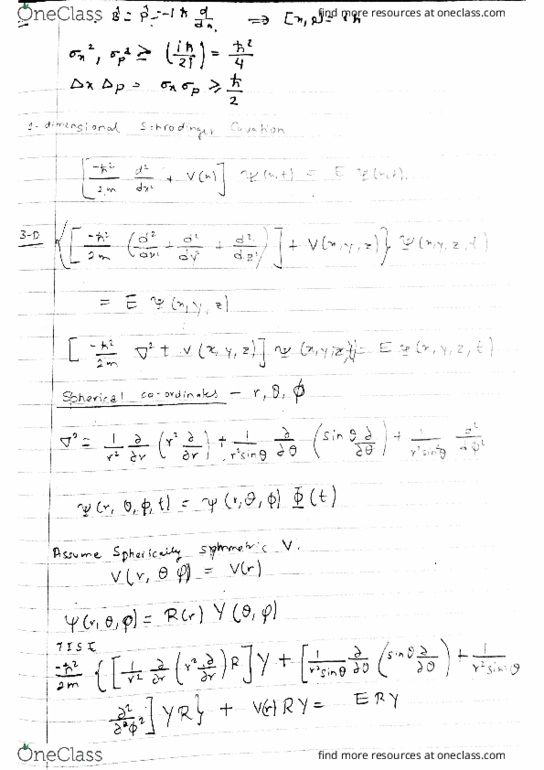 OneClass find more resources at oneclass.com
B̂ = P̂ = -iħ d/dx ⇒ [x, p] = iħ
σx², σp² ≥ (iħ/2i)² = ħ²/4
Δx Δp = σx σp ≥ ħ/2
1-dimensional Schrodinger Equation
[-ħ²/2m d²/dx² + V(x)] Ψ(x,t) = E Ψ(x,t).
3-D {[-ħ²/2m (d²/dx² + d²/dy² + d²/dz²)] + V(x,y,z)} Ψ(x,y,z,t)
= E Ψ(x,y,z)
[-ħ²/2m ∇² + V(x,y,z)] Ψ(x,y,z,t) = E Ψ(x,y,z,t)
Spherical co-ordinates – r, θ, ϕ
∇² = 1/r² ∂/∂r (r² ∂/∂r) + 1/r²sinθ ∂/∂θ (sinθ ∂/∂θ) + 1/r²sin²θ ∂²/∂ϕ²
Ψ(r, θ, ϕ, t) = ψ(r, θ, ϕ) Φ(t)
Assume Spherically symmetric V.
V(r, θ φ) = V(r)
Ψ(r, θ, φ) = R(r) Y(θ, φ)
TISE
-ħ²/2m {[1/r² ∂/∂r (r² ∂/∂r) R] Y + [1/r²sinθ ∂/∂θ (sinθ ∂/∂θ) + 1/r²sin²θ
∂²/∂²ϕ²] Y R} + V(r) R Y = E R Y
OneClass find more resources at oneclass.com